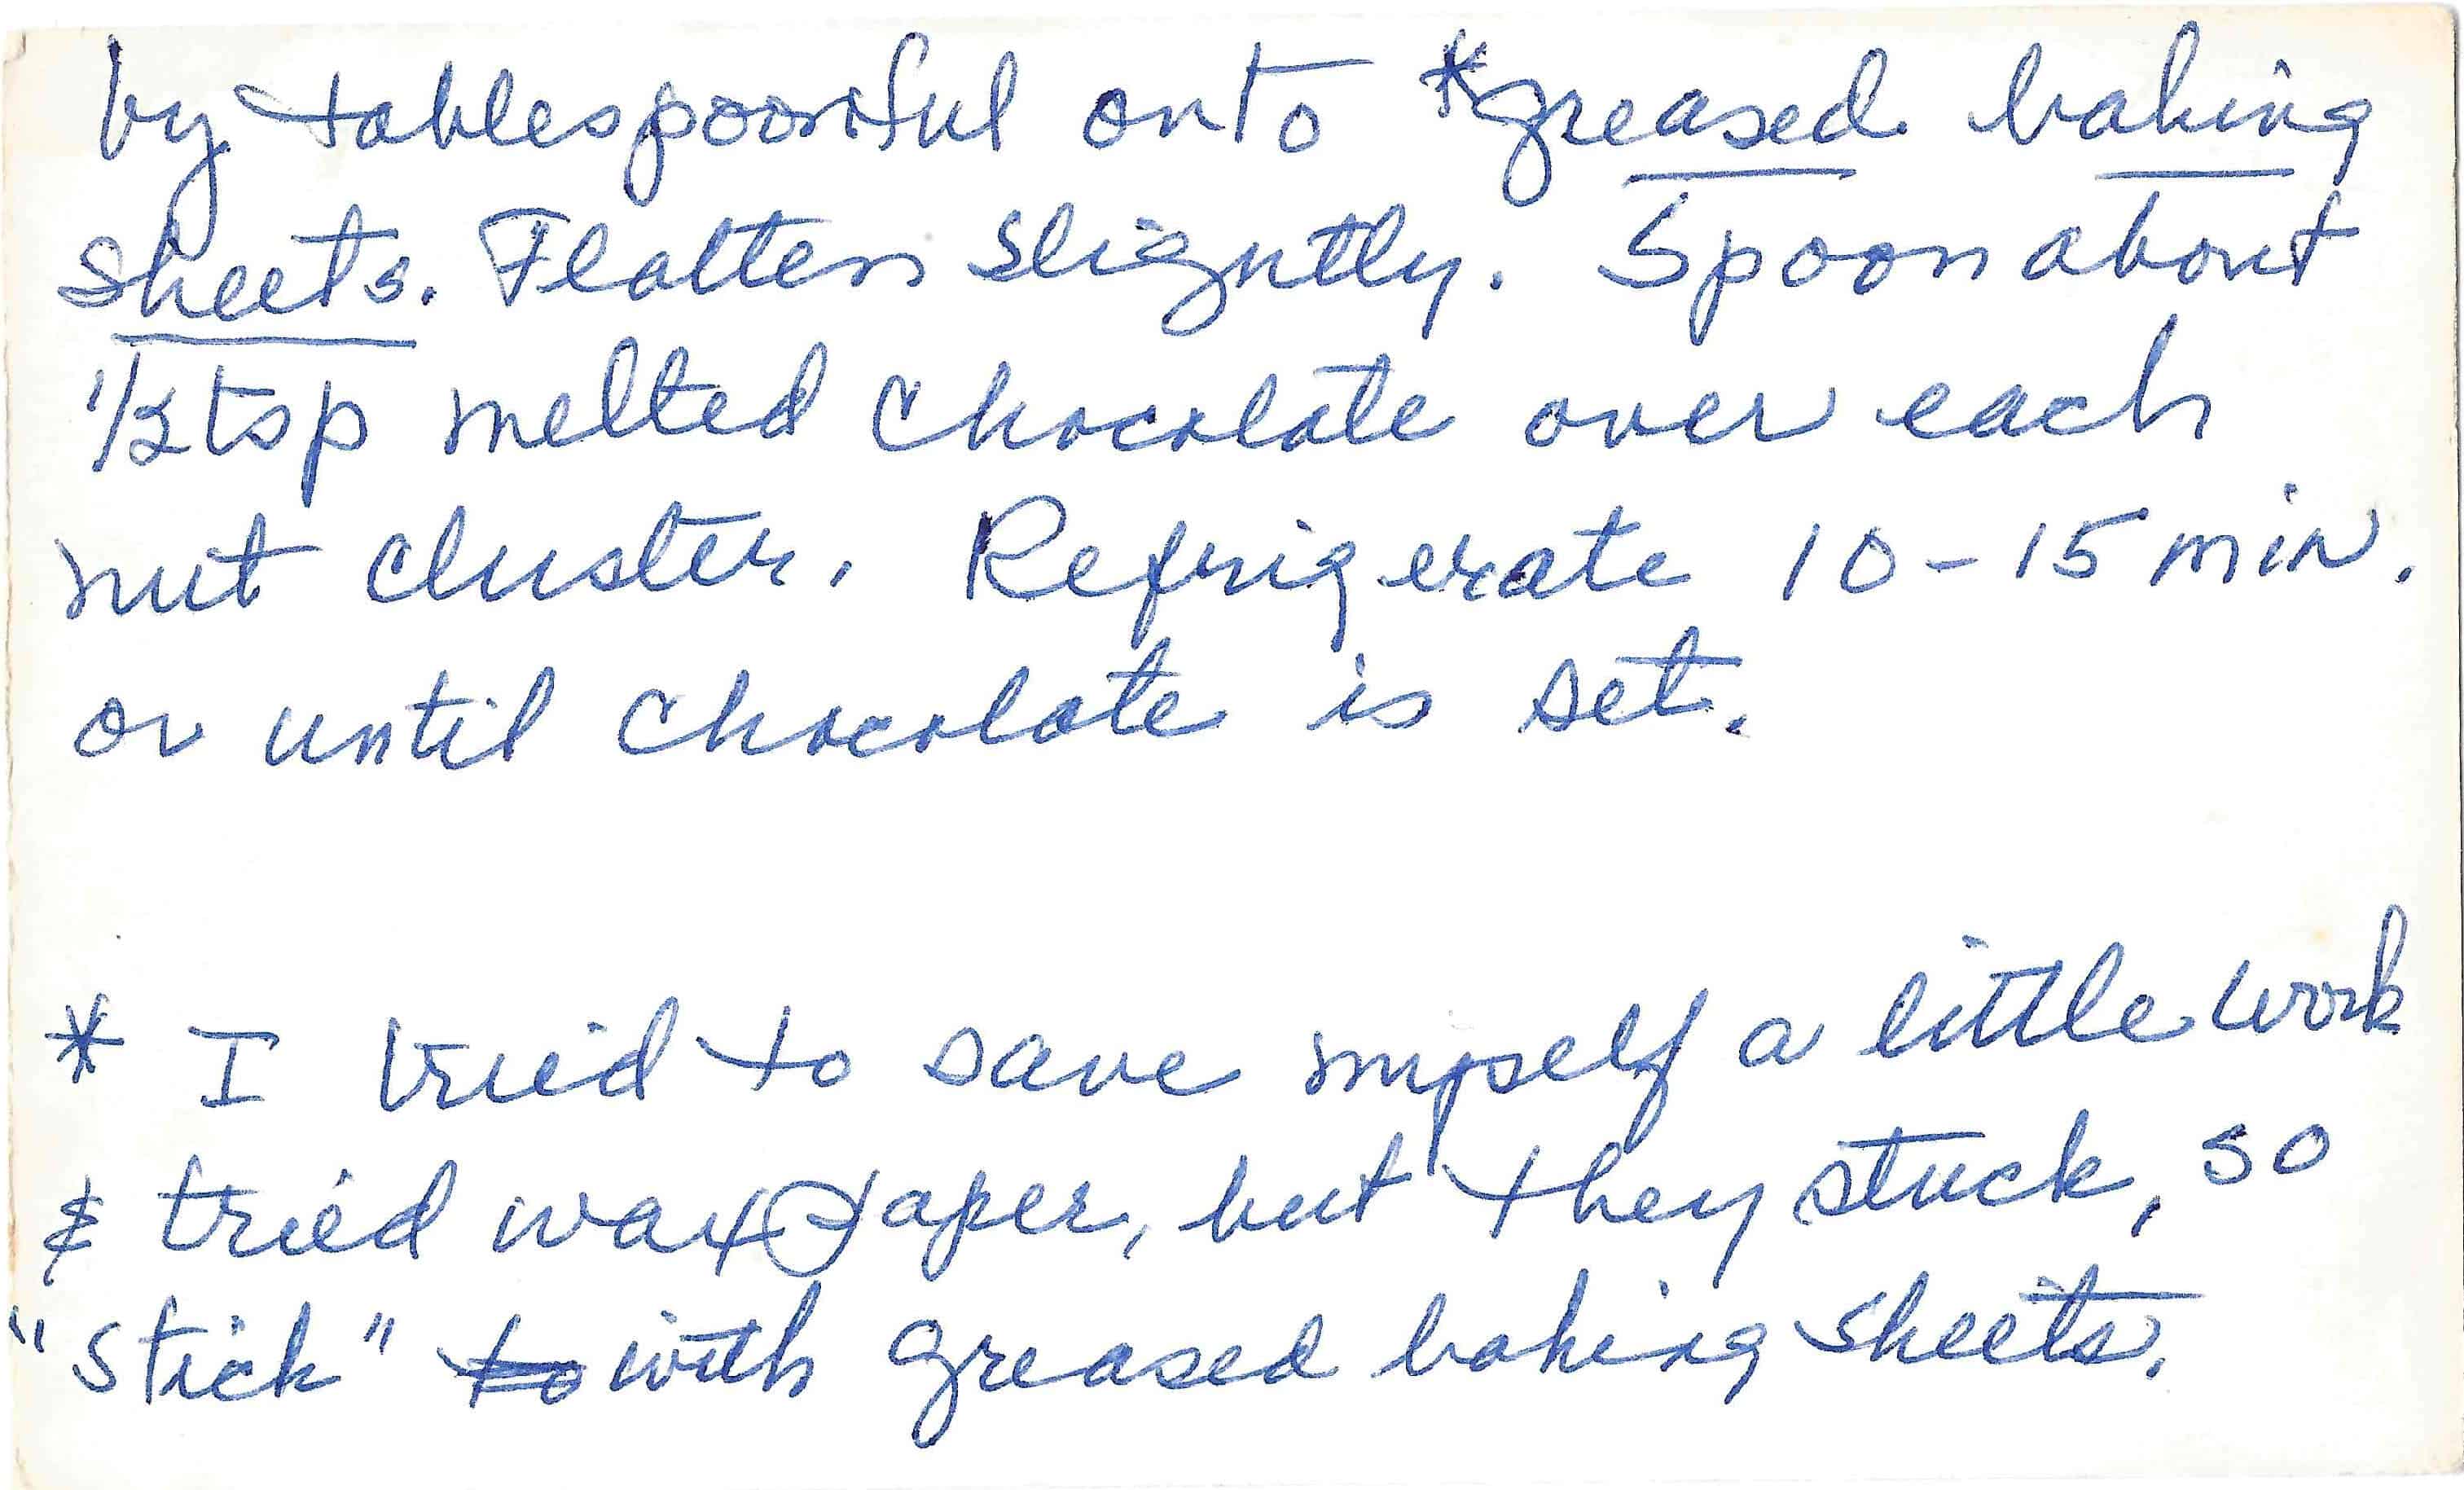 by tablespoonful onto *greased baking
sheets. Flatten slightly. Spoon about
1/2 tsp melted chocolate over each
nut cluster. Refrigerate 10-15 min.
or until chocolate is set.
* I tried to save myself a little work
& tried wax paper, but they stuck, so
"stick" to with greased baking sheets.